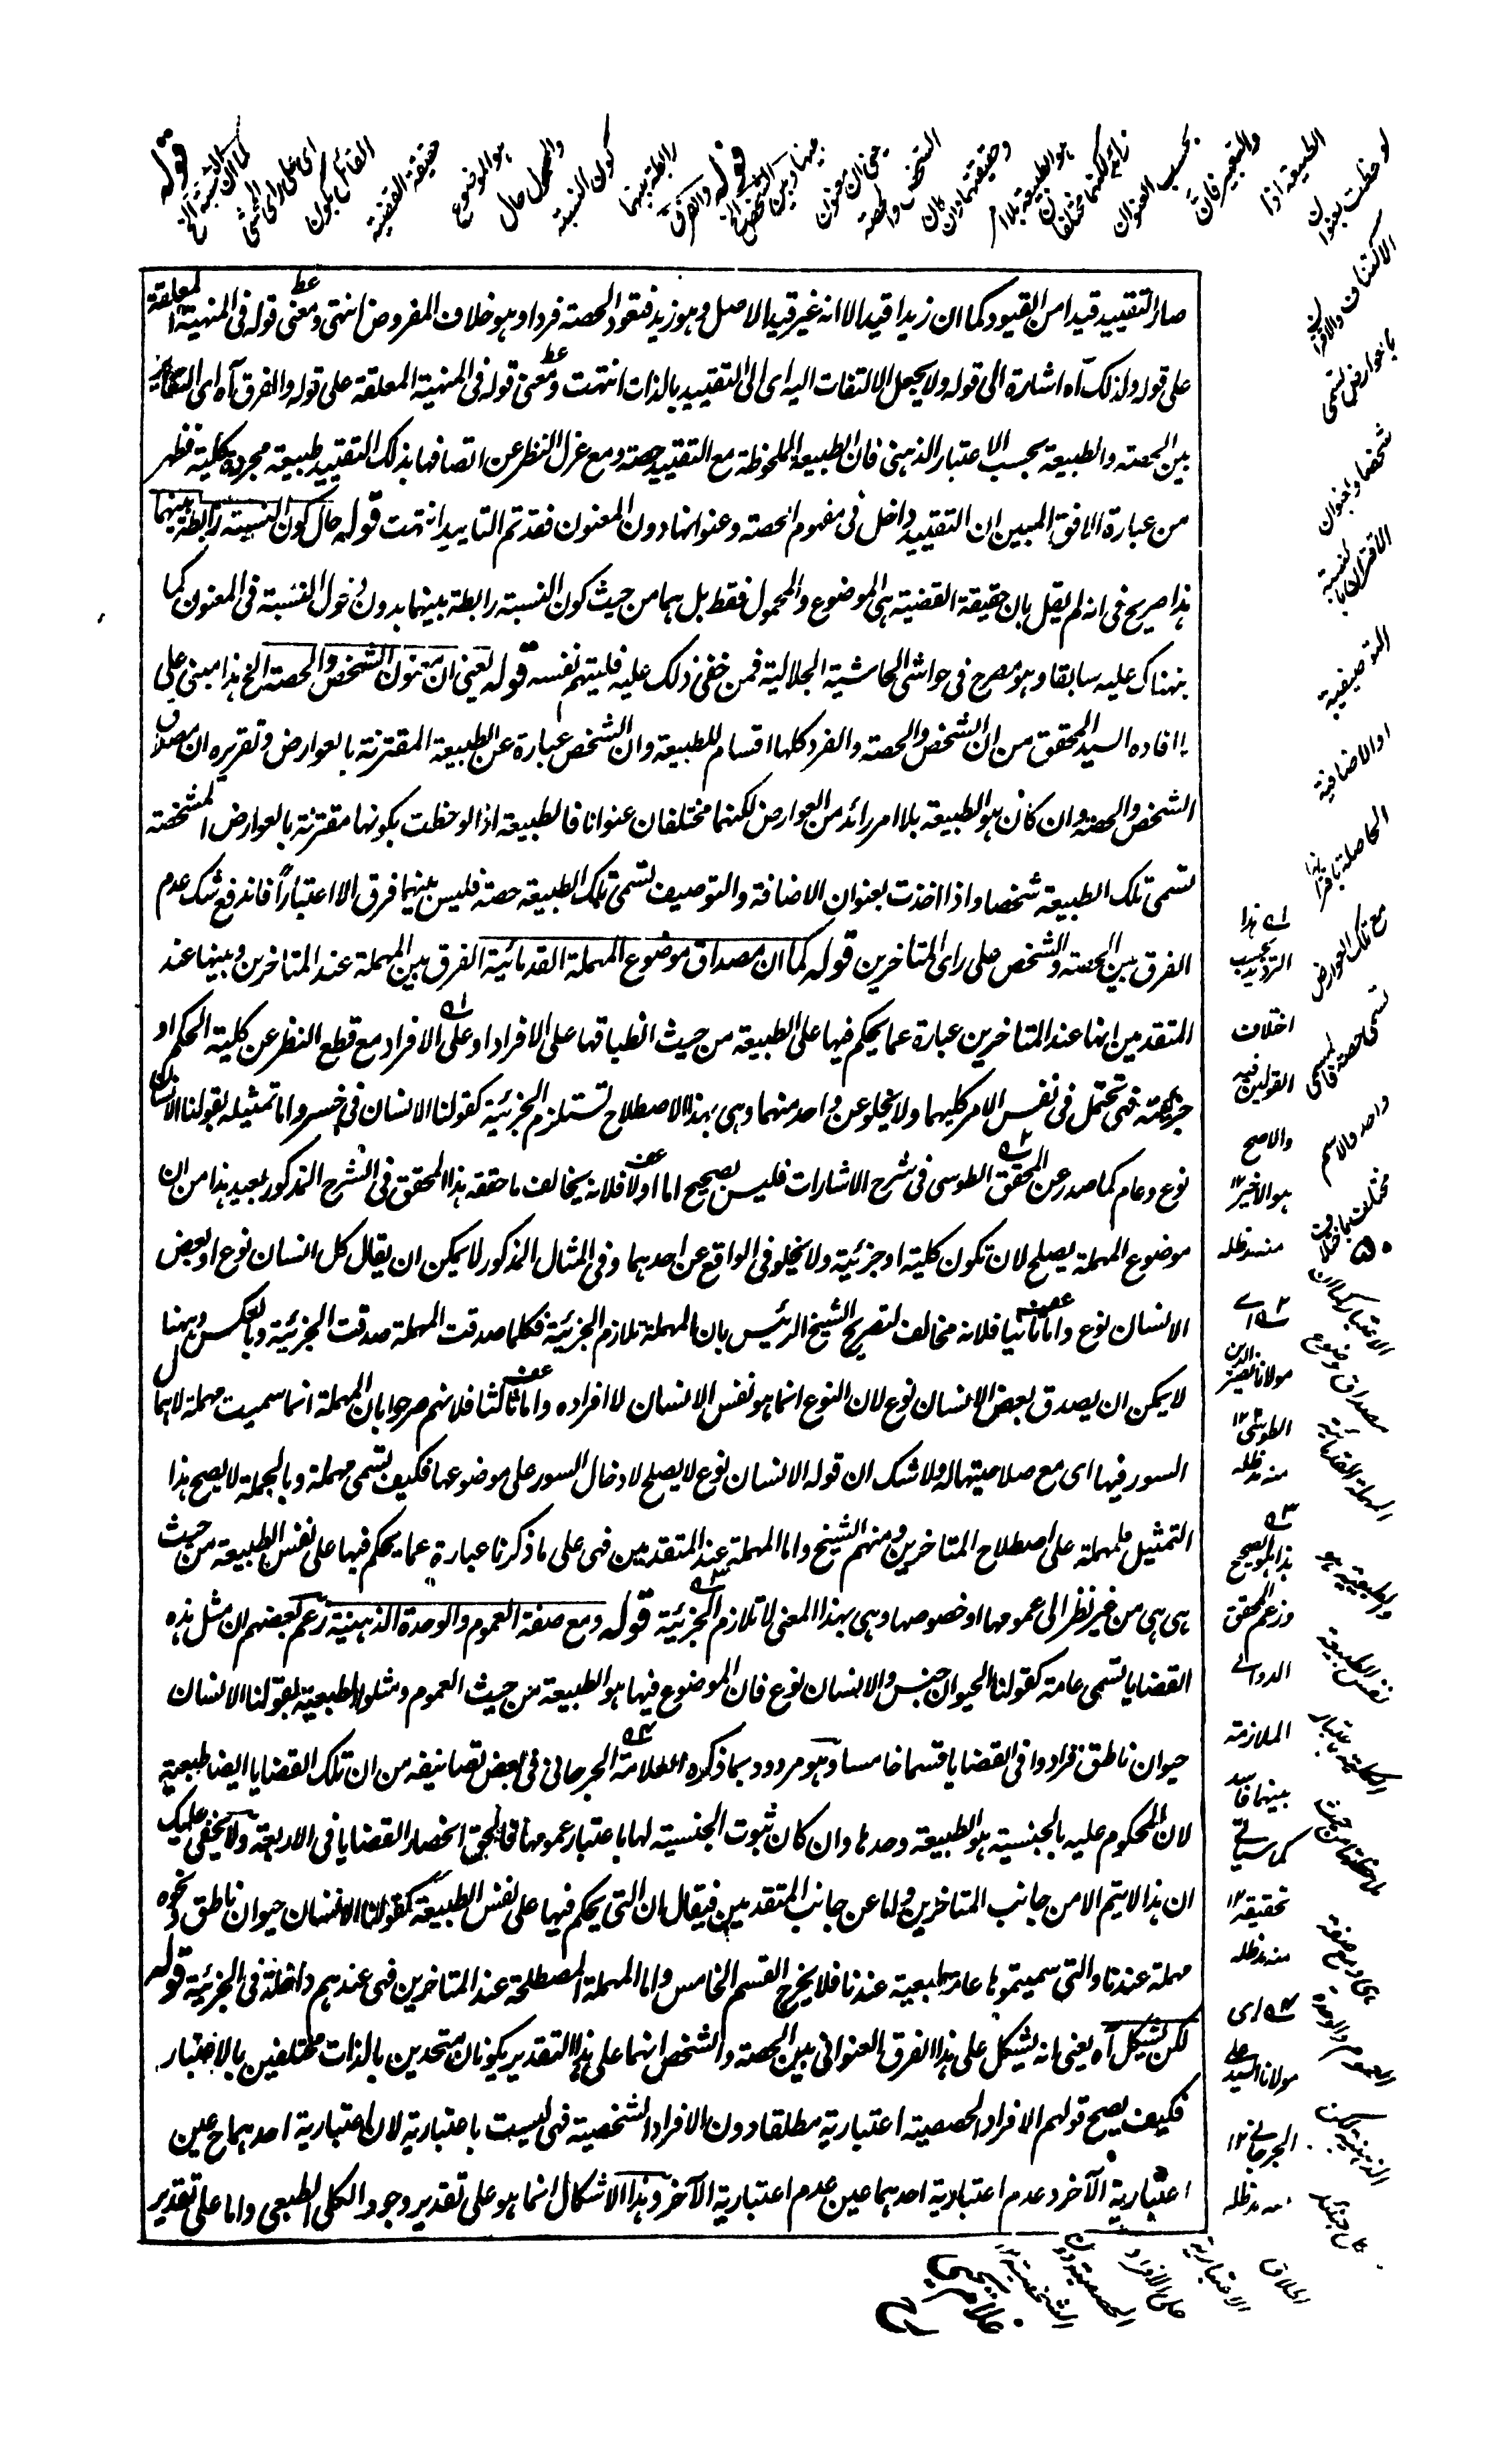 صار التقييد قيدا من القيود كما ان زيدا قيد الا انه غير قيد الاصل وهو زيد فتعود الحصة فردا وهو خلاف المفروض انتهى ومعنى قوله فى المنهية المعلقة
على قوله ولذلك آه اشارة الى قوله ولا يجعل الالتفات اليه اى الى التقييد بالذات انتهت ومعنى قوله فى المنهية المعلقة على قوله والفرق آه اى التغاير
بين الحصة والطبيعة بحسب الاعتبار الذهنى فان الطبيعة الملحوظة مع التقييد حصة ومع عزل النظر عن اتصافها بذلك التقييد طبيعة مجردة كلية فظهر
من عبارة الافق المبين ان التقييد داخل فى مفهوم الحصة وعنوانها دون المعنون فقد تم التاييد انتهت قوله حال كون النسبة رابطة بينهما
هذا صريح فى انه لم يقل بان حقيقة القضية هى الموضوع والمحمول فقط بل هما من حيث كون النسبة رابطة بينهما بدون دخول النسبة فى المعنون كما
نبهناك عليه سابقا وهو مصرح فى حواشى الحاشية الجلالية فمن خفى ذلك عليه فليتهم نفسه قوله يعنى ان معنون الشخص والحصة الخ هذا مبنى على
ما افاده السيد المحقق من ان الشخص والحصة والفرد كلها اقسام للطبيعة وان الشخص عبارة عن الطبيعة المقترنة بالعوارض وتقريره ان مصداق
الشخص والحصة وان كان هو الطبيعة بلا امر زائد من العوارض لكنهما مختلفان عنوانا فالطبيعة اذا لوحظت بكونها مقترنة بالعوارض المشخصة
تسمى تلك الطبيعة شخصا واذا اخذت بعنوان الاضافة والتوصيف تسمى تلك الطبيعة حصة فليس بينهما فرق الا اعتبارا فاندفع شك عدم
الفرق بين الحصة والشخص على راى المتاخرين قوله كما ان مصداق موضوع المهملة القدمائية الفرق بين المهملة عند المتاخرين وبينها عند
المتقدمين انها عند المتاخرين عبارة عما يحكم فيها على الطبيعة من حيث انطباقها على الافراد او على الافراد مع قطع النظر عن كلية الحكم او
جزئيته فهى تحتمل فى نفس الامر كليهما ولا يخلو عن واحد منهما وهى بهذا الاصطلاح تستلزم الجزئية كقولنا الانسان فى خسر واما تمثيله بقولنا الانسان
نوع وعام كما صدر عن المحقق الطوسى فى شرح الاشارات فليس بصحيح اما اولا فلانه يخالف ما حققه هذا المحقق فى الشرح المذكور بعيد هذا من ان
موضوع المهملة يصلح لان تكون كلية او جزئية ولا يخلو فى الواقع عن احدهما وفى المثال المذكور لا يمكن ان يقال كل انسان نوع او بعض
الانسان نوع واما ثانيا فلانه مخالف لتصريح الشيخ الرئيس بان المهملة تلازم الجزئية فكلما صدقت المهملة صدقت الجزئية وبالعكس وههنا
لا يمكن ان يصدق بعض الانسان نوع لان النوع انما هو نفس الانسان لا افراده واما ثالثا فلانهم صرحوا بان المهملة انما سميت مهملة لاهمال
السور فيها اى مع صلاحيتها له ولا شك ان قوله الانسان نوع لا يصلح لادخال السور على موضوعها فكيف تسمى مهملة وبالجملة لا يصح هذا
التمثيل للمهملة على اصطلاح المتاخرين ومنهم الشيخ واما المهملة عند المتقدمين فهى على ما ذكرنا عبارة عما يحكم فيها على نفس الطبيعة من حيث
هى هى من غير نظر الى عمومها او خصوصها وهى بهذا المعنى لا تلازم الجزئية قوله ومع صفة العموم والوحدة الذهنية زعم بعضهم ان مثل هذه
القضايا تسمى عامة كقولنا الحيوان جنس والانسان نوع فان الموضوع فيها هو الطبيعة من حيث العموم ومثلوا للطبعية بقولنا الانسان
حيوان ناطق فزادوا فى القضايا قسما خامسا وهو مردود بما ذكره العلامة الجرجانى فى بعض تصانيفه من ان تلك القضايا ايضا طبعية
لان المحكوم عليه بالجنسية هو الطبيعة وحدها وان كان ثبوت الجنسية لها باعتبار عمومها فالحق انحصار القضايا فى الاربعة ولا يخفى عليك
ان هذا لا يتم الا من جانب المتاخرين واما عن جانب المتقدمين فيقال ان التى يحكم فيها على نفس الطبيعة كقولنا الانسان حيوان ناطق ونحوه
مهملة عندنا والتى سميتموها عامة طبعية عندنا فلا يخرج القسم الخامس واما المهملة المصطلحة عند المتاخرين فهى عندهم داخلة فى الجزئية قوله
لكن يشكل آه يعنى انه يشكل على هذا الفرق العنوانى بين الحصة والشخص انهما على هذا التقدير يكونان متحدين بالذات مختلفين بالاعتبار
فكيف يصح قولهم الافراد الحصصية اعتبارية مطلقا دون الافراد الشخصية فهى ليست باعتبارية لان اعتبارية احدهما ح عين
اعتبارية الآخر وعدم اعتبارية احدهما عين عدم اعتبارية الآخر وهذا الاشكال انما هو على تقدير وجود الكلى الطبعى واما على تقدير
قوله
كما ان النسبة الخ
اى على راى المحشى
القائل بكون
حقيقة القضية
هو الموضوع
والمحمول حال
كون النسبة
رابطة بينهما
قوله والفرق
بينها وبين الشخص الخ
يعنى ان معنون
الشخص والحصة
وحقيقتهما وان كان
هو الطبيعة بلا امر
زائد لكنهما مختلفان
بحسب العنوان
والتعبير فان
الطبيعة اذا
لوحظت بعنوان
الاكتناف والاقتران
بالعوارض تسمى
شخصا وبعنوان
الاقتران بالنسبة
التوصيفية
او الاضافية
الحاصلة باقترانها
مع تلك العوارض
تسمى حصة فالمسمى
واحد والاسم
مختلف باختلاف
الاعتبار كما ان
مصداق موضوع
المهملة القدمائية
والطبعية هو
نفس الطبيعة
الكلية باعتبار
ملاحظتها من حيث
هى ومع صفة
العموم والوحدة
الذهنية لكن
اطلاق
الاعتبارية
على الافراد
الحصصية دون
الشخصية
اى هذا
الترديد بحسب
اختلاف
القولين فيه
والاصح
هو الاخير ١٢
منه مد ظله
اى
مولانا نصير الدين
الطوسى ١٢
منه مد ظله
هذا هو الصحيح
وزعم المحقق
الدوانى
الملازمة
بينهما فاسد
كما سياتى
تحقيقه ١٢
منه مد ظله
اى
مولانا السيد على
الجرجانى ١٢
منه مد ظله